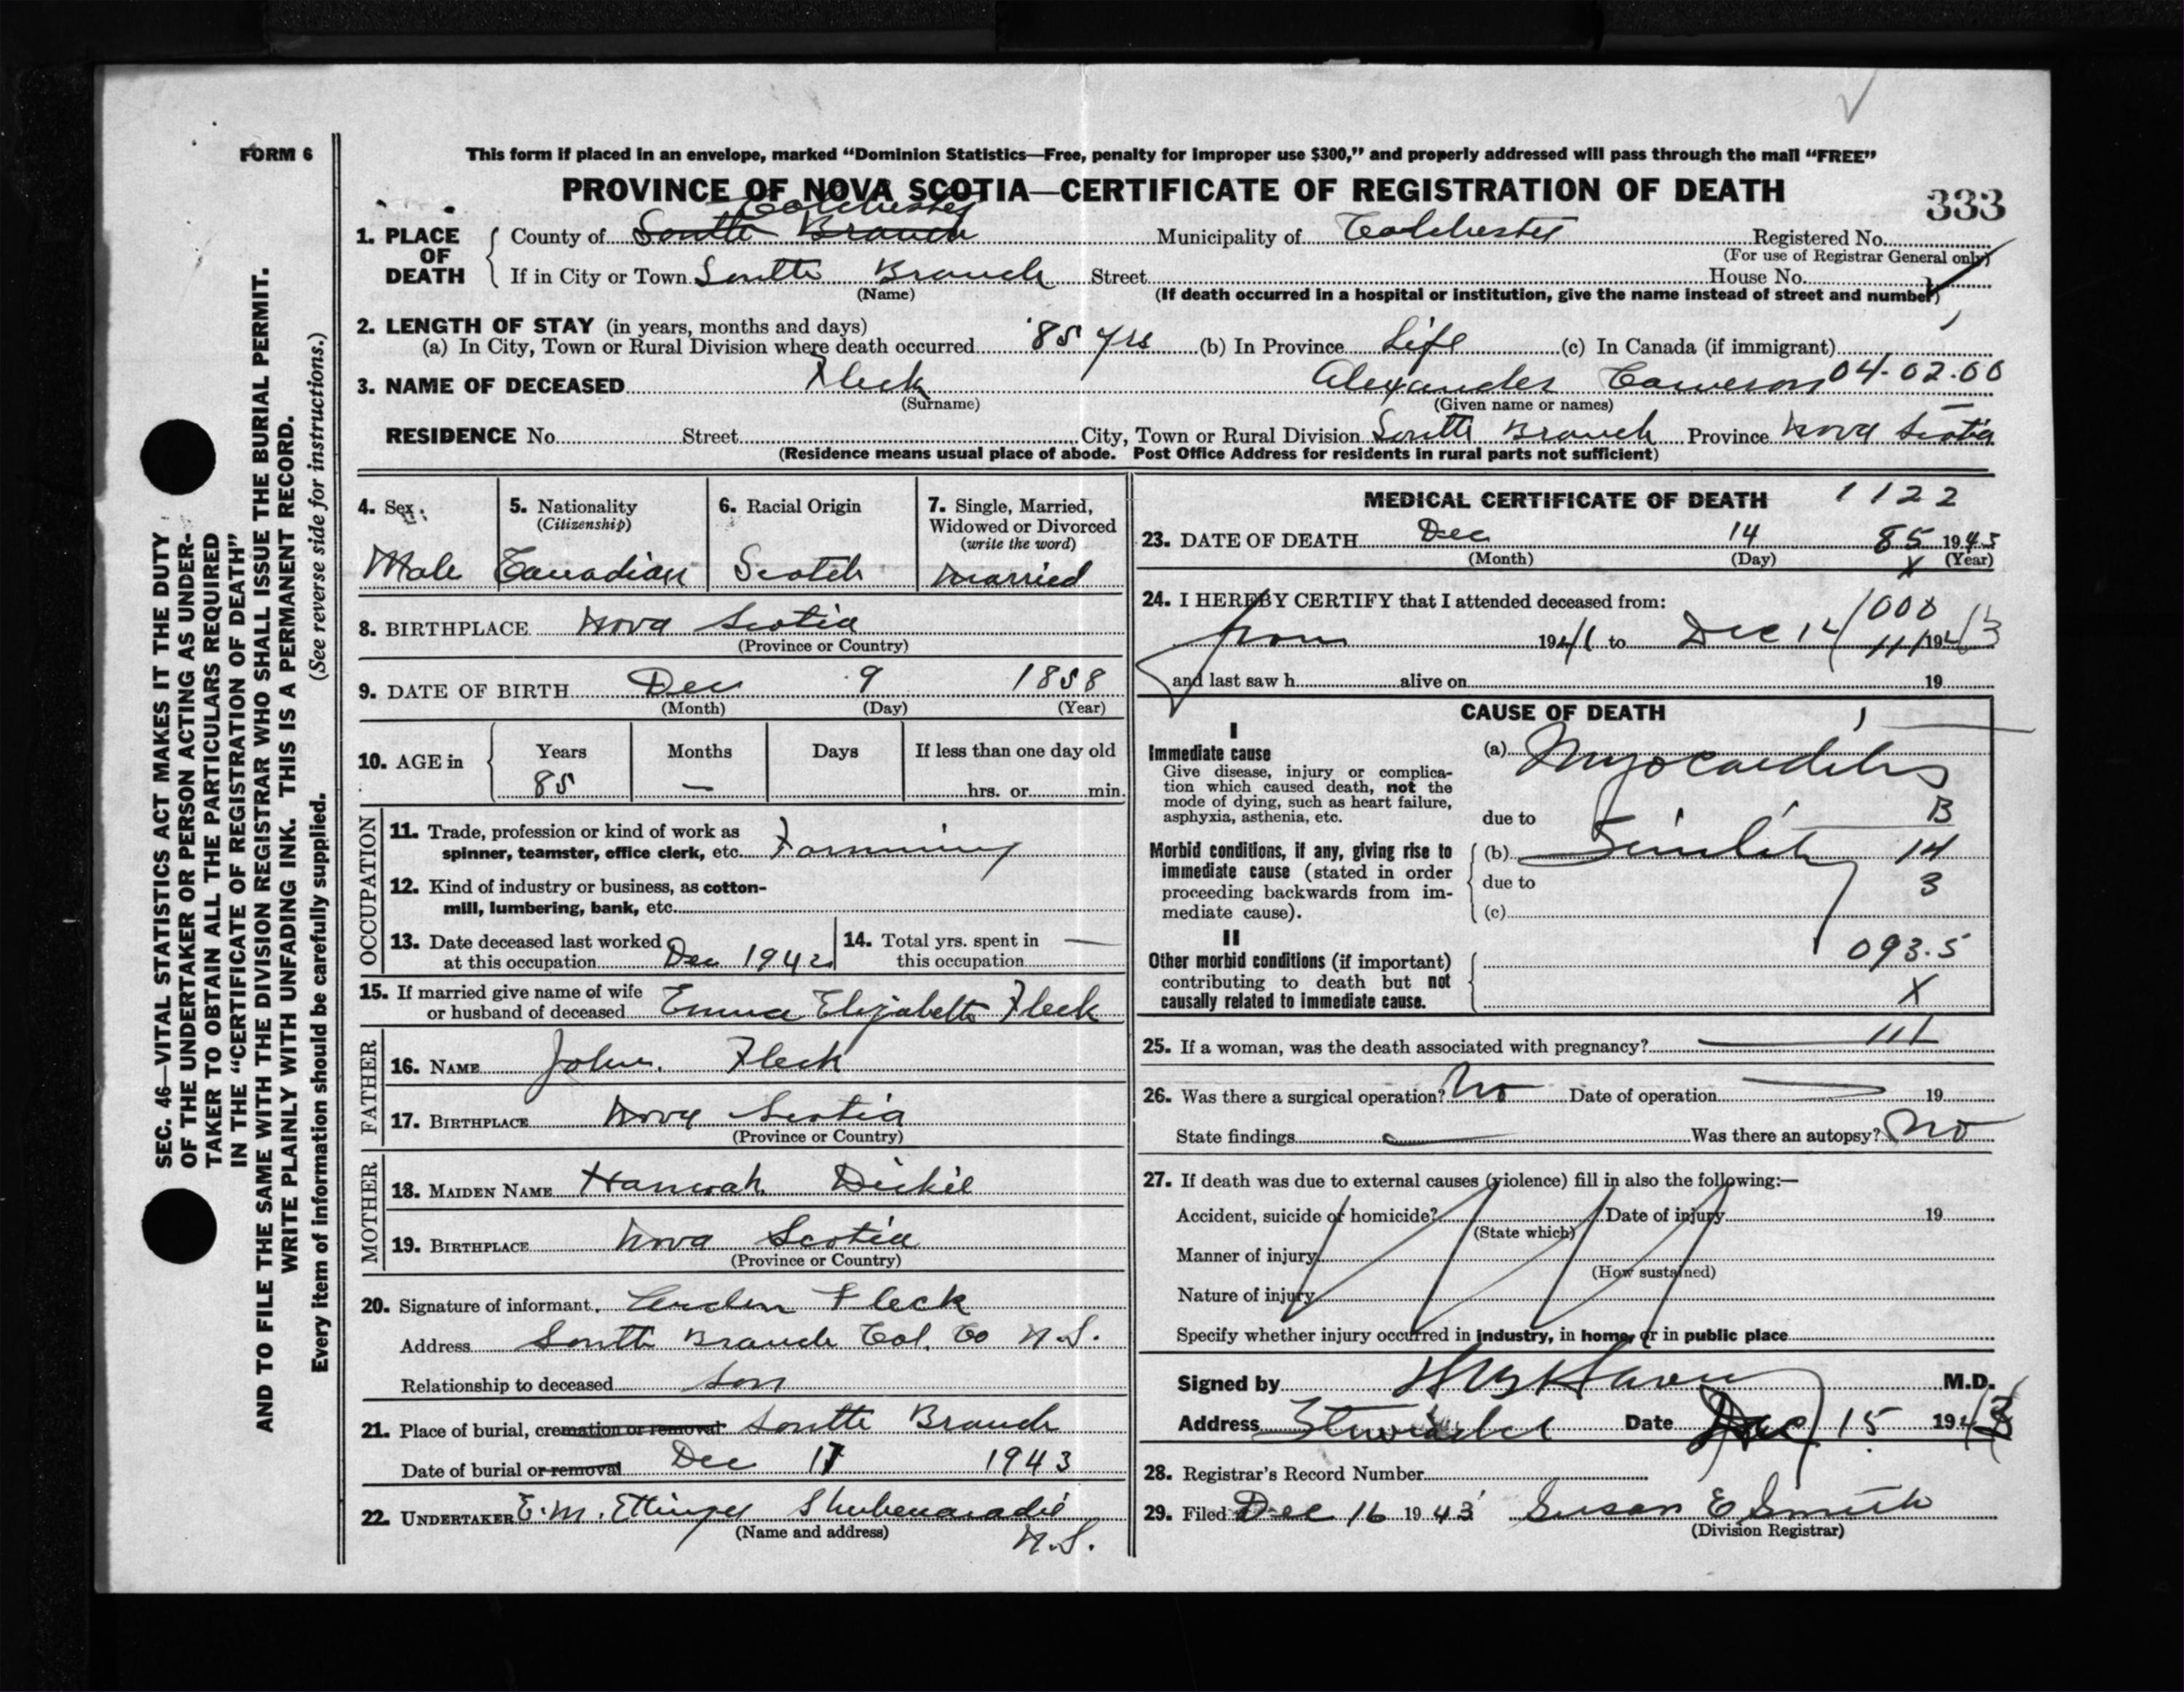 FORM 6
This form if placed in an envelope, marked “Dominion Statistics—Free, penalty for improper use $300,” and properly addressed will pass through the mail “FREE”
PROVINCE OF NOVA SCOTIA—CERTIFICATE OF REGISTRATION OF DEATH
333
Colchester
1. PLACE OF DEATH County of South Branch Municipality of Colchester Registered No.
(For use of Registrar General only)
If in City or Town South Branch Street House No.
(Name) (If death occurred in a hospital or institution, give the name instead of street and number)
2. LENGTH OF STAY (in years, months and days)
(a) In City, Town or Rural Division where death occurred 85 yrs (b) In Province Life (c) In Canada (if immigrant)
3. NAME OF DECEASED Fleck Alexander Cameron 04-02.00
(Surname) (Given name or names)
RESIDENCE No. Street City, Town or Rural Division South Branch Province Nova Scotia
(Residence means usual place of abode. Post Office Address for residents in rural parts not sufficient)
4. Sex. 5. Nationality 6. Racial Origin 7. Single, Married,
(Citizenship) Widowed or Divorced
(write the word)
Male Canadian Scotch Married
8. BIRTHPLACE Nova Scotia
(Province or Country)
9. DATE OF BIRTH Dec 9 1858
(Month) (Day) (Year)
10. AGE in Years Months Days If less than one day old
85 — hrs. or min.
OCCUPATION
11. Trade, profession or kind of work as
spinner, teamster, office clerk, etc. Farming
12. Kind of industry or business, as cotton-
mill, lumbering, bank, etc.
13. Date deceased last worked
at this occupation Dec 1942
14. Total yrs. spent in
this occupation —
15. If married give name of wife
or husband of deceased Emma Elizabeth Fleck
FATHER
16. NAME John Fleck
17. BIRTHPLACE Nova Scotia
(Province or Country)
MOTHER
18. MAIDEN NAME Hannah Dickie
19. BIRTHPLACE Nova Scotia
(Province or Country)
20. Signature of informant Fleck
Address South Branch Col. Co N.S.
Relationship to deceased Son
21. Place of burial, cremation or removal South Branch
Date of burial or removal Dec 17 1943
22. UNDERTAKER E.M. Ettinger Shubenacadie
(Name and address)
N.S.
MEDICAL CERTIFICATE OF DEATH 1122
23. DATE OF DEATH Dec 14 85 1943
(Month) (Day) X (Year)
24. I HEREBY CERTIFY that I attended deceased from:
000
1941 to Dec 14 111 1943
and last saw h alive on 19
CAUSE OF DEATH
I
Immediate cause
Give disease, injury or complica-
tion which caused death, not the
mode of dying, such as heart failure,
asphyxia, asthenia, etc.
(a) Myocarditis
B
due to
Morbid conditions, if any, giving rise to
immediate cause (stated in order
proceeding backwards from im-
mediate cause).
(b) Senility 14
due to 3
(c)
II
Other morbid conditions (if important)
contributing to death but not
causally related to immediate cause.
093.5
X
25. If a woman, was the death associated with pregnancy? 111
26. Was there a surgical operation? No Date of operation 19
State findings Was there an autopsy? No
27. If death was due to external causes (violence) fill in also the following:—
Accident, suicide or homicide? Date of injury 19
(State which)
Manner of injury
(How sustained)
Nature of injury
Specify whether injury occurred in industry, in home, or in public place
Signed by M.D.
Address Stewiacke Date Dec 15 1943
28. Registrar's Record Number
29. Filed Dec 16 1943 Susan E Smith
(Division Registrar)
SEC. 46—VITAL STATISTICS ACT MAKES IT THE DUTY
OF THE UNDERTAKER OR PERSON ACTING AS UNDER-
TAKER TO OBTAIN ALL THE PARTICULARS REQUIRED
IN THE “CERTIFICATE OF REGISTRATION OF DEATH”
AND TO FILE THE SAME WITH THE DIVISION REGISTRAR WHO SHALL ISSUE THE BURIAL PERMIT.
WRITE PLAINLY WITH UNFADING INK. THIS IS A PERMANENT RECORD.
Every item of information should be carefully supplied. (See reverse side for instructions.)